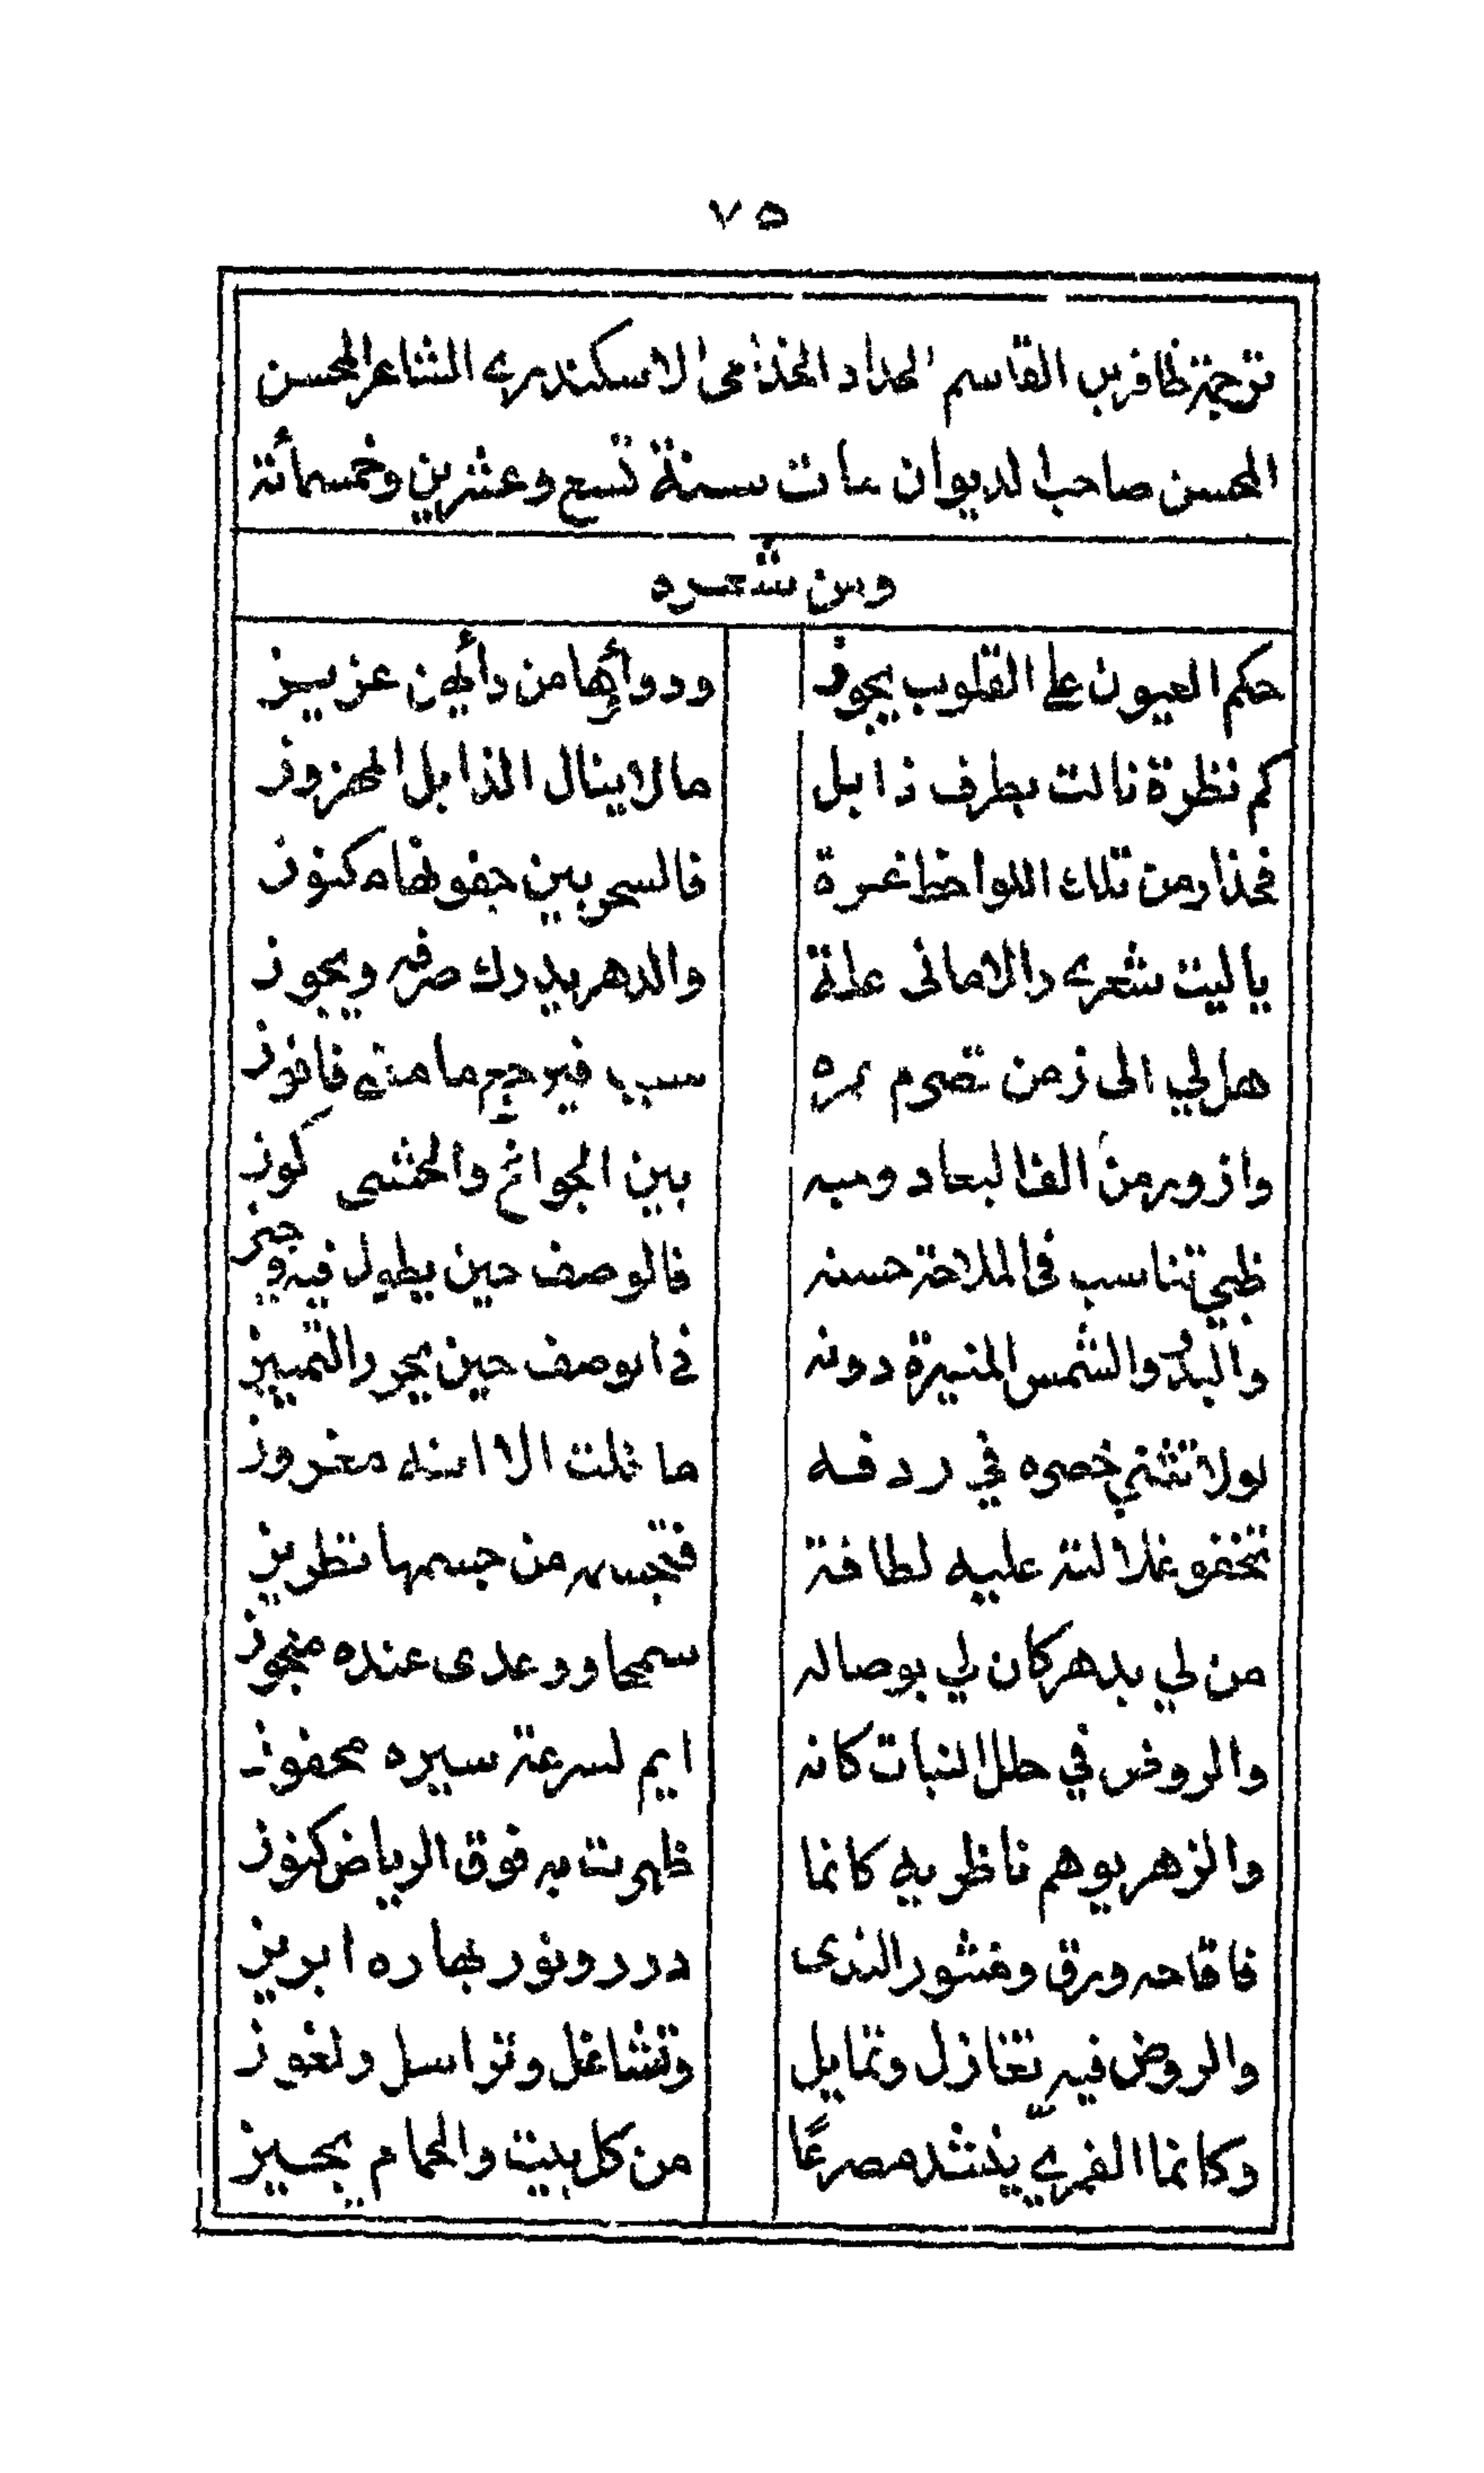 ٧٥
ترجمة ظافر بن القاسم الحداد الجذامى الاسكندرى الشاعر المحسن
المحسن صاحب الديوان مات سنة تسع وعشرين وخمسمائة
ومن شعره
حكم العيون على القلوب يجوز ودوأها من دأيهن عزيز
كم نظرة نالت بطرف ذابل ما لا ينال الذابل المهزوز
فحذار من تلك اللواحظ غرة فالسحر بين جفونها مكنوز
يا ليت شعرى والامانى علة والدهر يدرك صرفه ويجوز
هل لي الى زمن تصرم سبب فيرجع ما مضى فافوز
وازور من الف البعاد وحبه بين الجوانح والحشى كوز
ظبي تناسب فى الملاحة حسنه فالوصف حين يطول فيه وجيز
والبدر والشمس المنيرة دونه فى الوصف حين يحرر التمييز
لولا تثني خصره في ردفه ما خلت الا انه مغروز
تخفو غلالته عليه لطافة من جسمها تطريز
من لي بدهر كان لي بوصاله سمحا ووعدى عنده منجوز
والروض في حلل النبات كانه ايم لسرعة سيره محفوز
والزهر يوهم ناظريه كانما ظهرت به فوق الرياض كنوز
فاقاحه ورق ومنثور الندى درر ونور بهاره ابريز
والروض فيه تغازل وتمايل وتشاغل وتراسل ولغوز
وكانما القمري ينشد مصرعًا من كل بيت والحمام يجيز